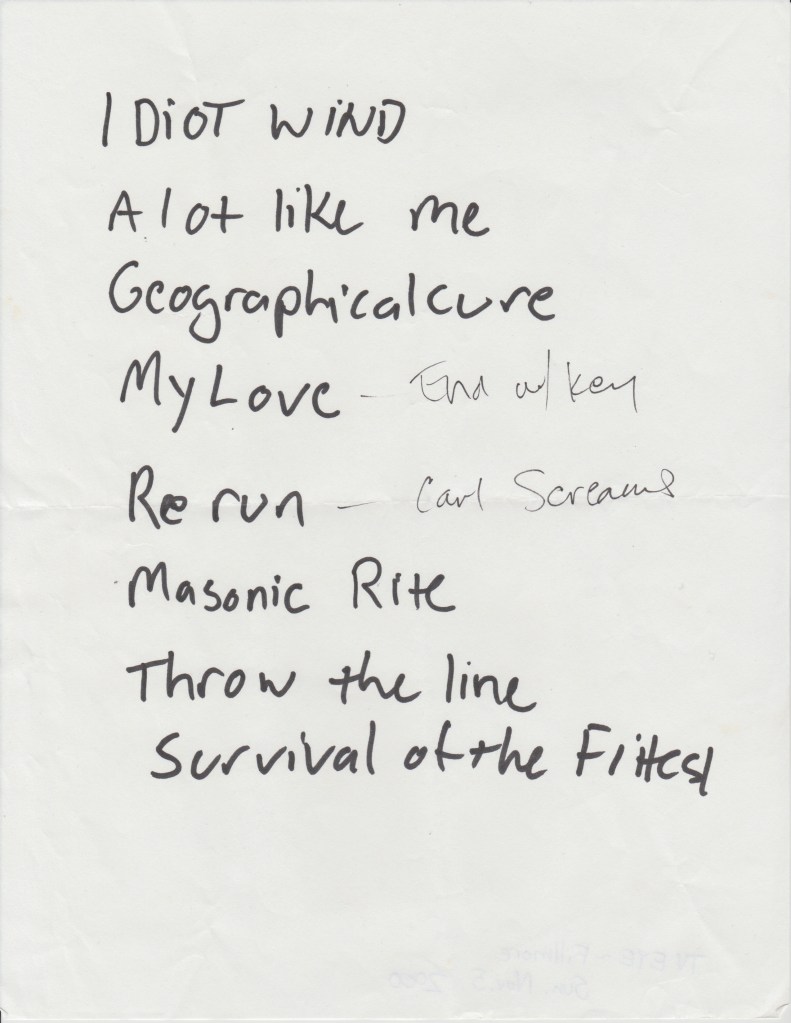 IDiOT WiND
A lot like me
Geographical cure
My Love – End w/ key
Rerun – Carl Screams
Masonic Rite
Throw the line
Survival of the Fittest